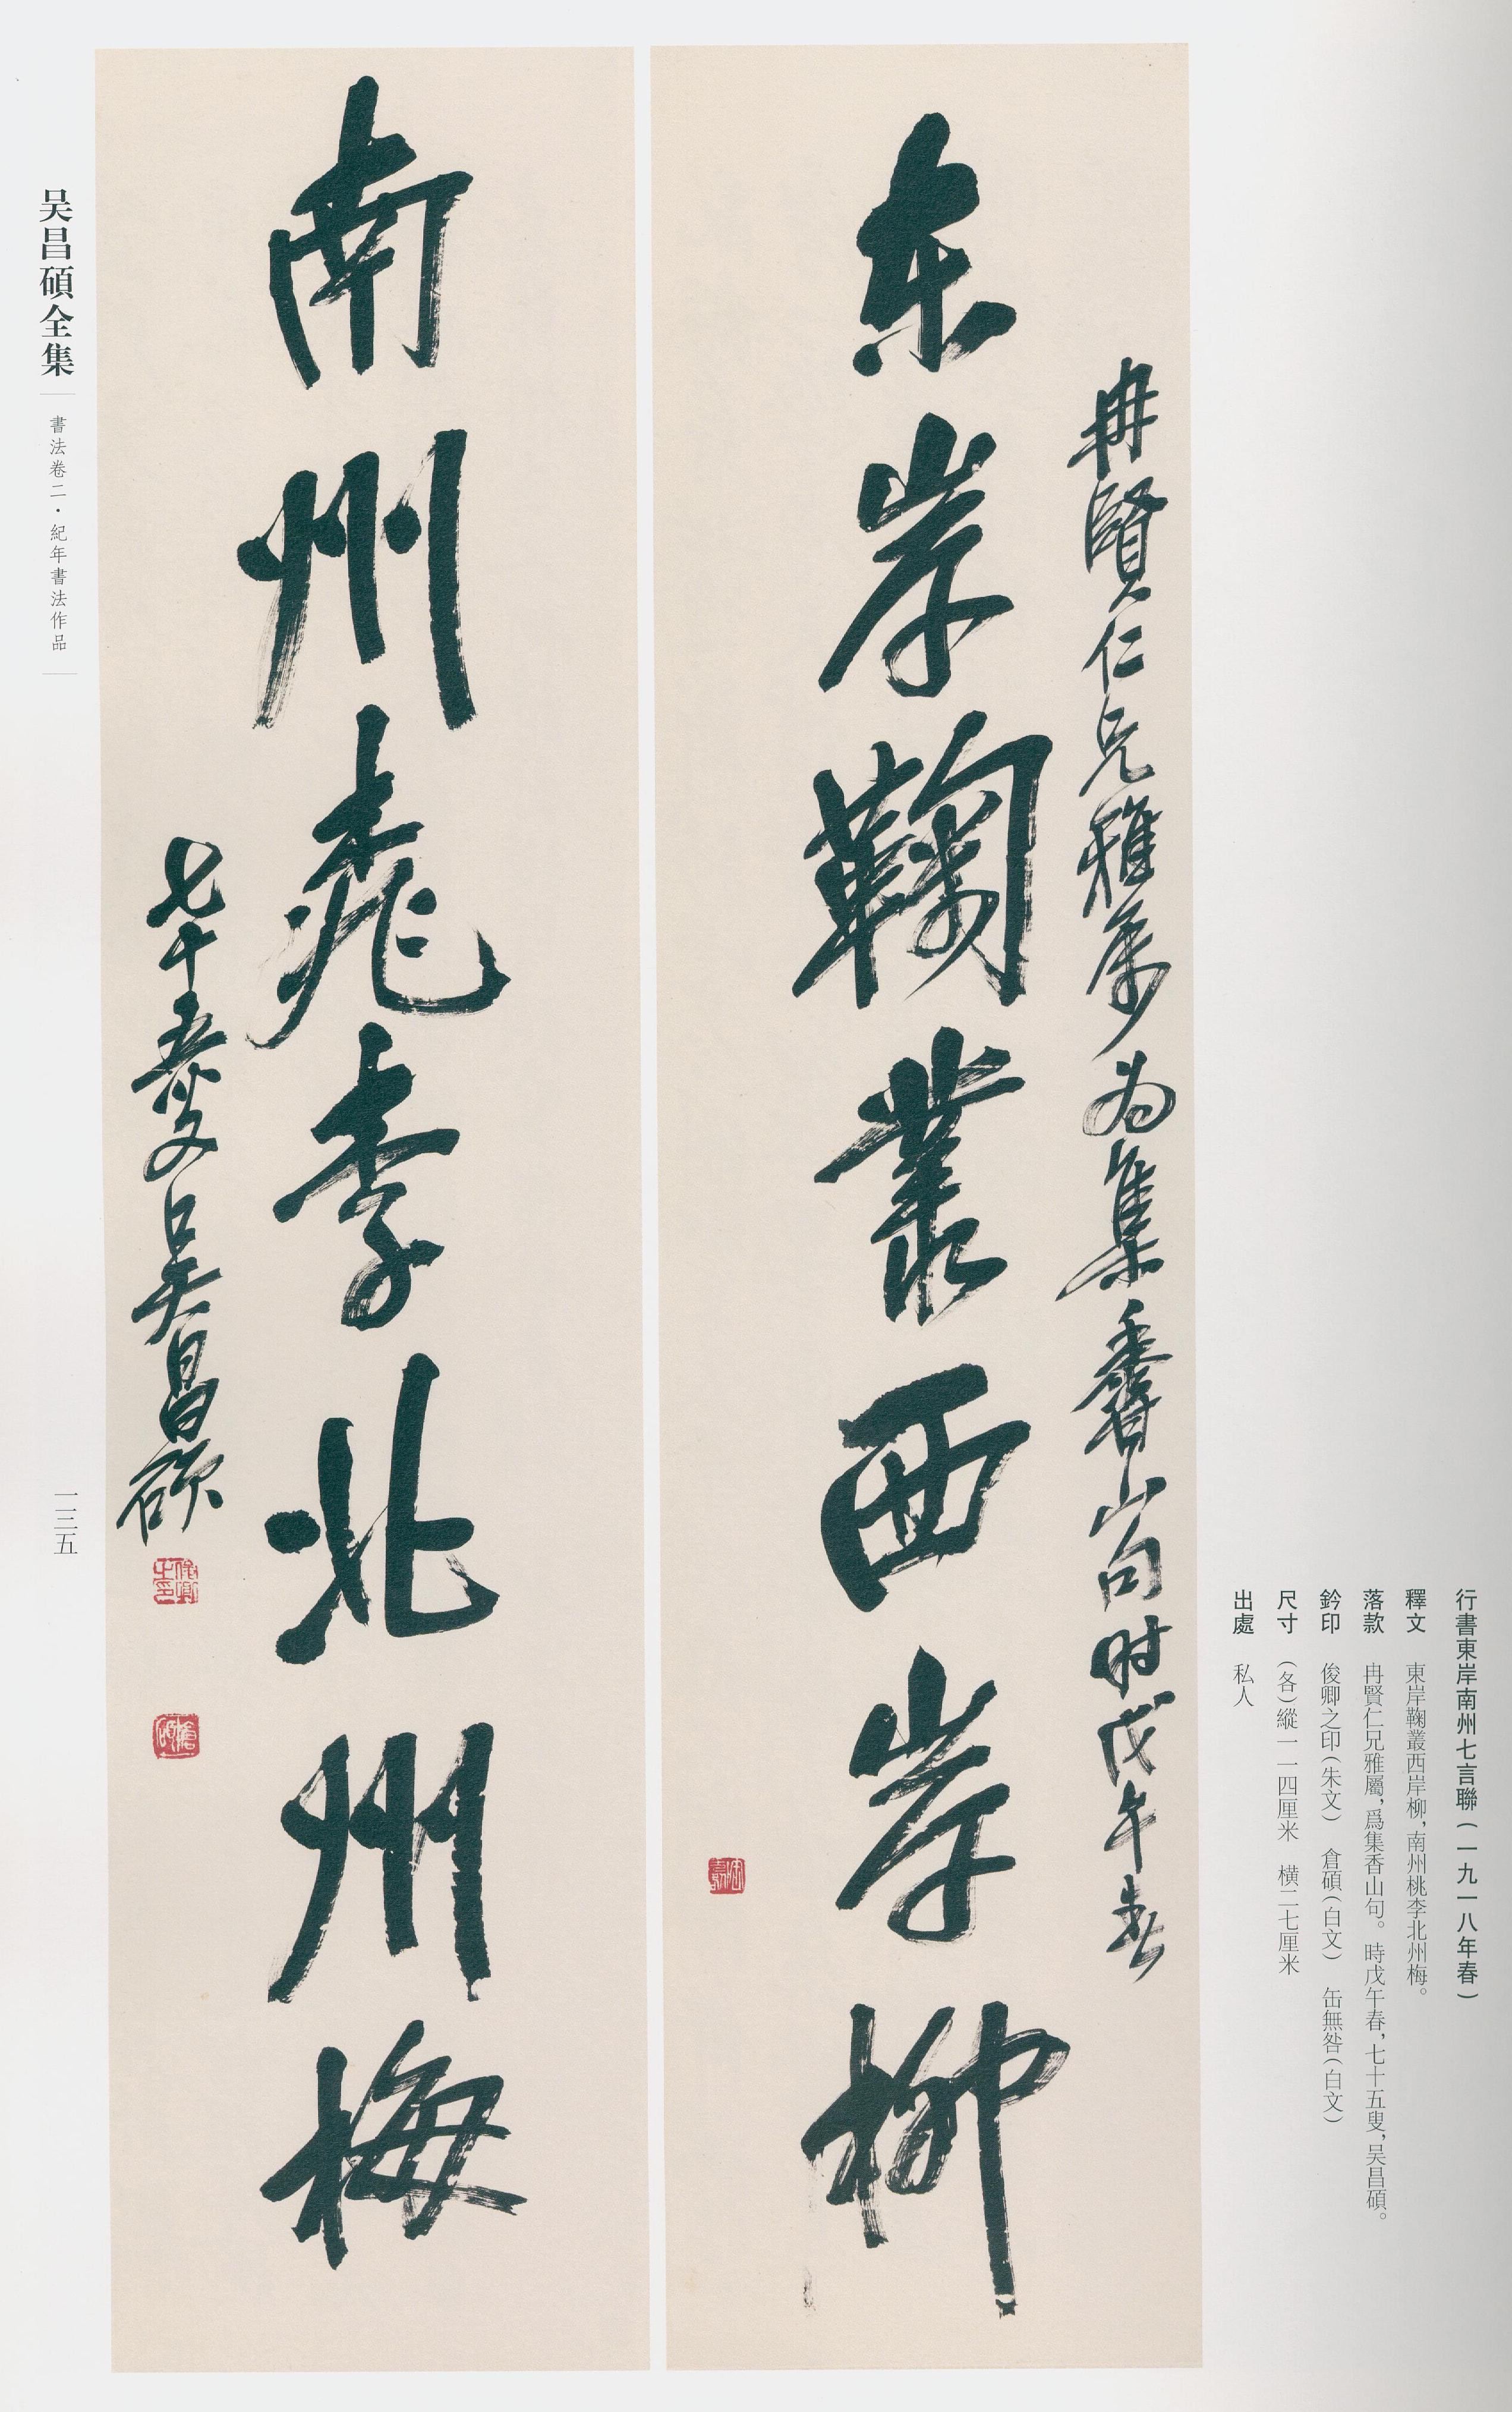 行書東岸南州七言聯(一九一八年春)
釋文 東岸鞠叢西岸柳,南州桃李北州梅。
落款 冉賢仁兄雅屬,爲集香山句。時戊午春,七十五叟,吴昌碩。
鈐印 俊卿之印(朱文) 倉碩(白文) 缶無咎(白文)
尺寸 (各)縱一一四厘米 横二七厘米
出處 私人
冉賢仁兄雅屬为集香山句时戊午春
东岸鞠叢西岸柳
南州桃李北州梅
七十五叟吴昌碩
俊卿之印
倉碩
吴昌碩全集
書法卷二·紀年書法作品
一三五